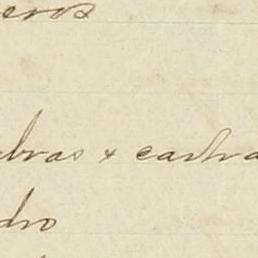 eros
bras & castra
dro